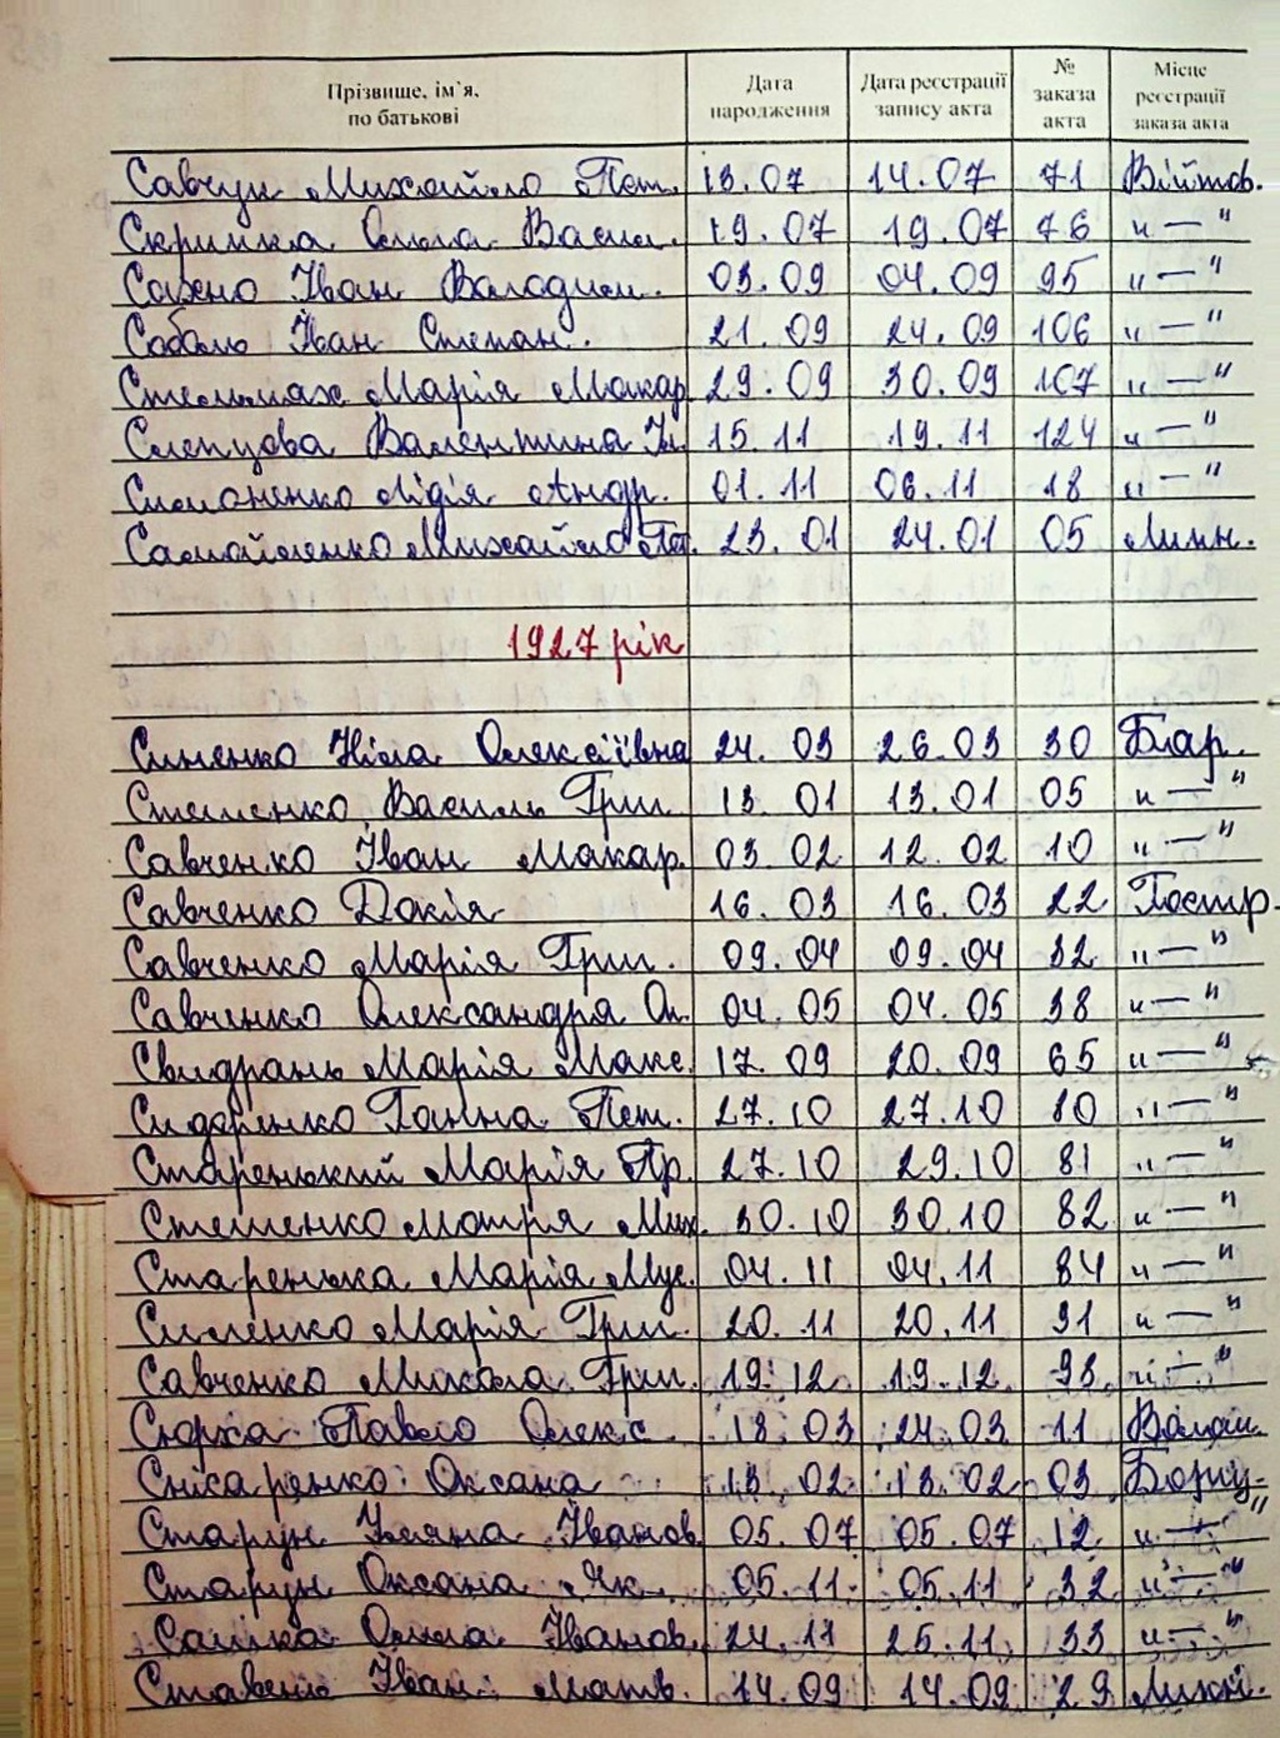 Прізвище, ім`я, по батькові Дата народження Дата реєстрації запису акта № заказа акта Місце реєстрації заказа акта
Савчук Михайло Пет. 13.07 14.07 71 Війтов.
Скрипка Ольга Васил. 19.07 19.07 76 "—"
Сахно Іван Володим. 03.09 04.09 95 "—"
Соболь Іван Степан. 21.09 24.09 106 "—"
Стельмах Марія Макар 29.09 30.09 107 "—"
Слепцова Валентина Іл. 15.11 19.11 124 "—"
Симоненко Лідія Андр. 01.11 06.11 18 "—"
Самойленко Михайло 23.01 24.01 05
1927 рік
Синенко Ніла Олексіївна 24.03 26.03 30 Блар.
Стеценко Василь Григ. 13.01 13.01 05 "—"
Савченко Іван Макар. 03.02 12.02 10 "—"
Савченко Докія 16.03 16.03 22 Гостр.
Савченко Марія Григ. 09.04 09.04 32 "—"
Савченко Олександра Ол. 04.05 04.05 38 "—"
Свидрань Марія Макс. 17.09 20.09 65 "—"
Сидоренко Ганна Пет. 27.10 27.10 80 "—"
Старенький Марія Гр. 27.10 29.10 81 "—"
Мотря Мих. 30.10 30.10 82 "—"
Старенька Марія Мус. 04.11 04.11 84 "—"
Марія Григ. 20.11 20.11 91 "—"
Савченко Микола Григ. 19.12 19.12 98 "—"
Сюрха Павло Олекс. 18.03 24.03 11 Волош.
Снісаренко Оксана 13.02 13.02 03
Старун Уляна Іванов. 05.07 05.07 12 "—"
Старун Оксана Як. 05.11 05.11 32 "—"
Ольга Іванов. 24.11 25.11 33 "—"
Іван Матв. 14.09 14.09 29